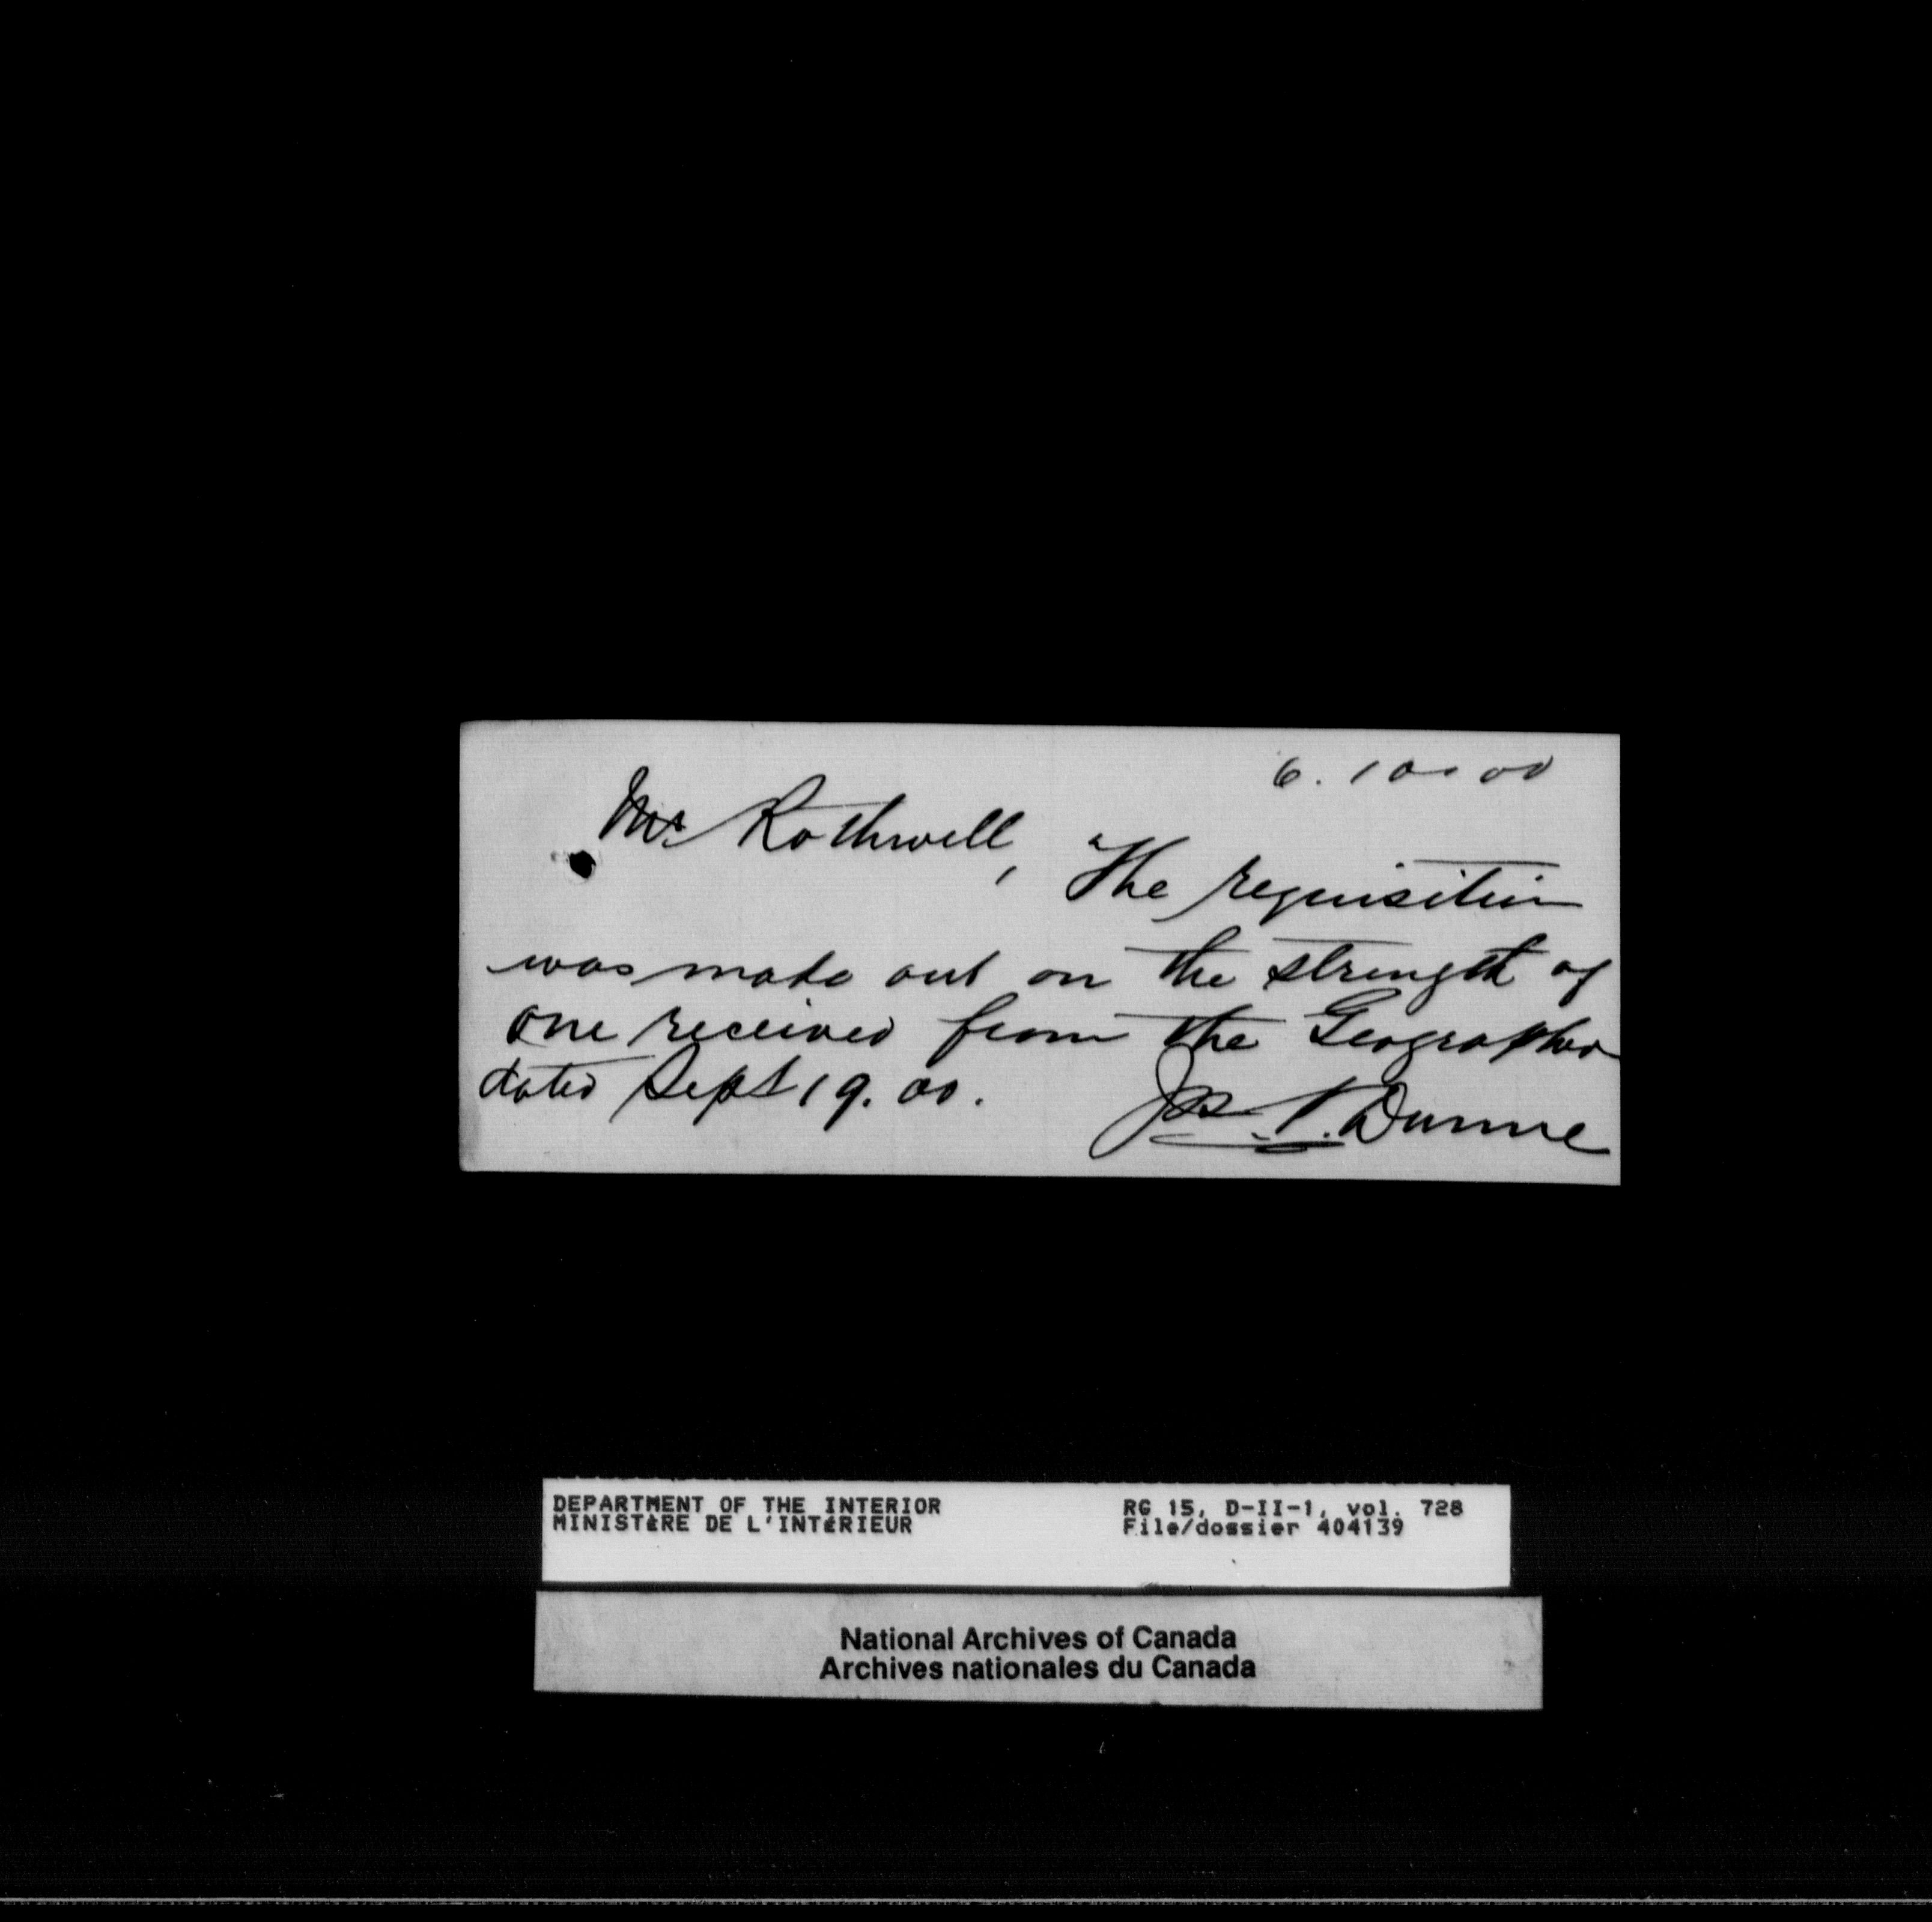 6. 10. 00
Mr Rothwell,
The requisition
was made out on the strength of
one received from the Geographer
dated Sept 19. 00.
Jas. P. Dunne
DEPARTMENT OF THE INTERIOR
MINISTÈRE DE L'INTÉRIEUR
RG 15, D-II-1, vol. 728
File/dossier 404139
National Archives of Canada
Archives nationales du Canada